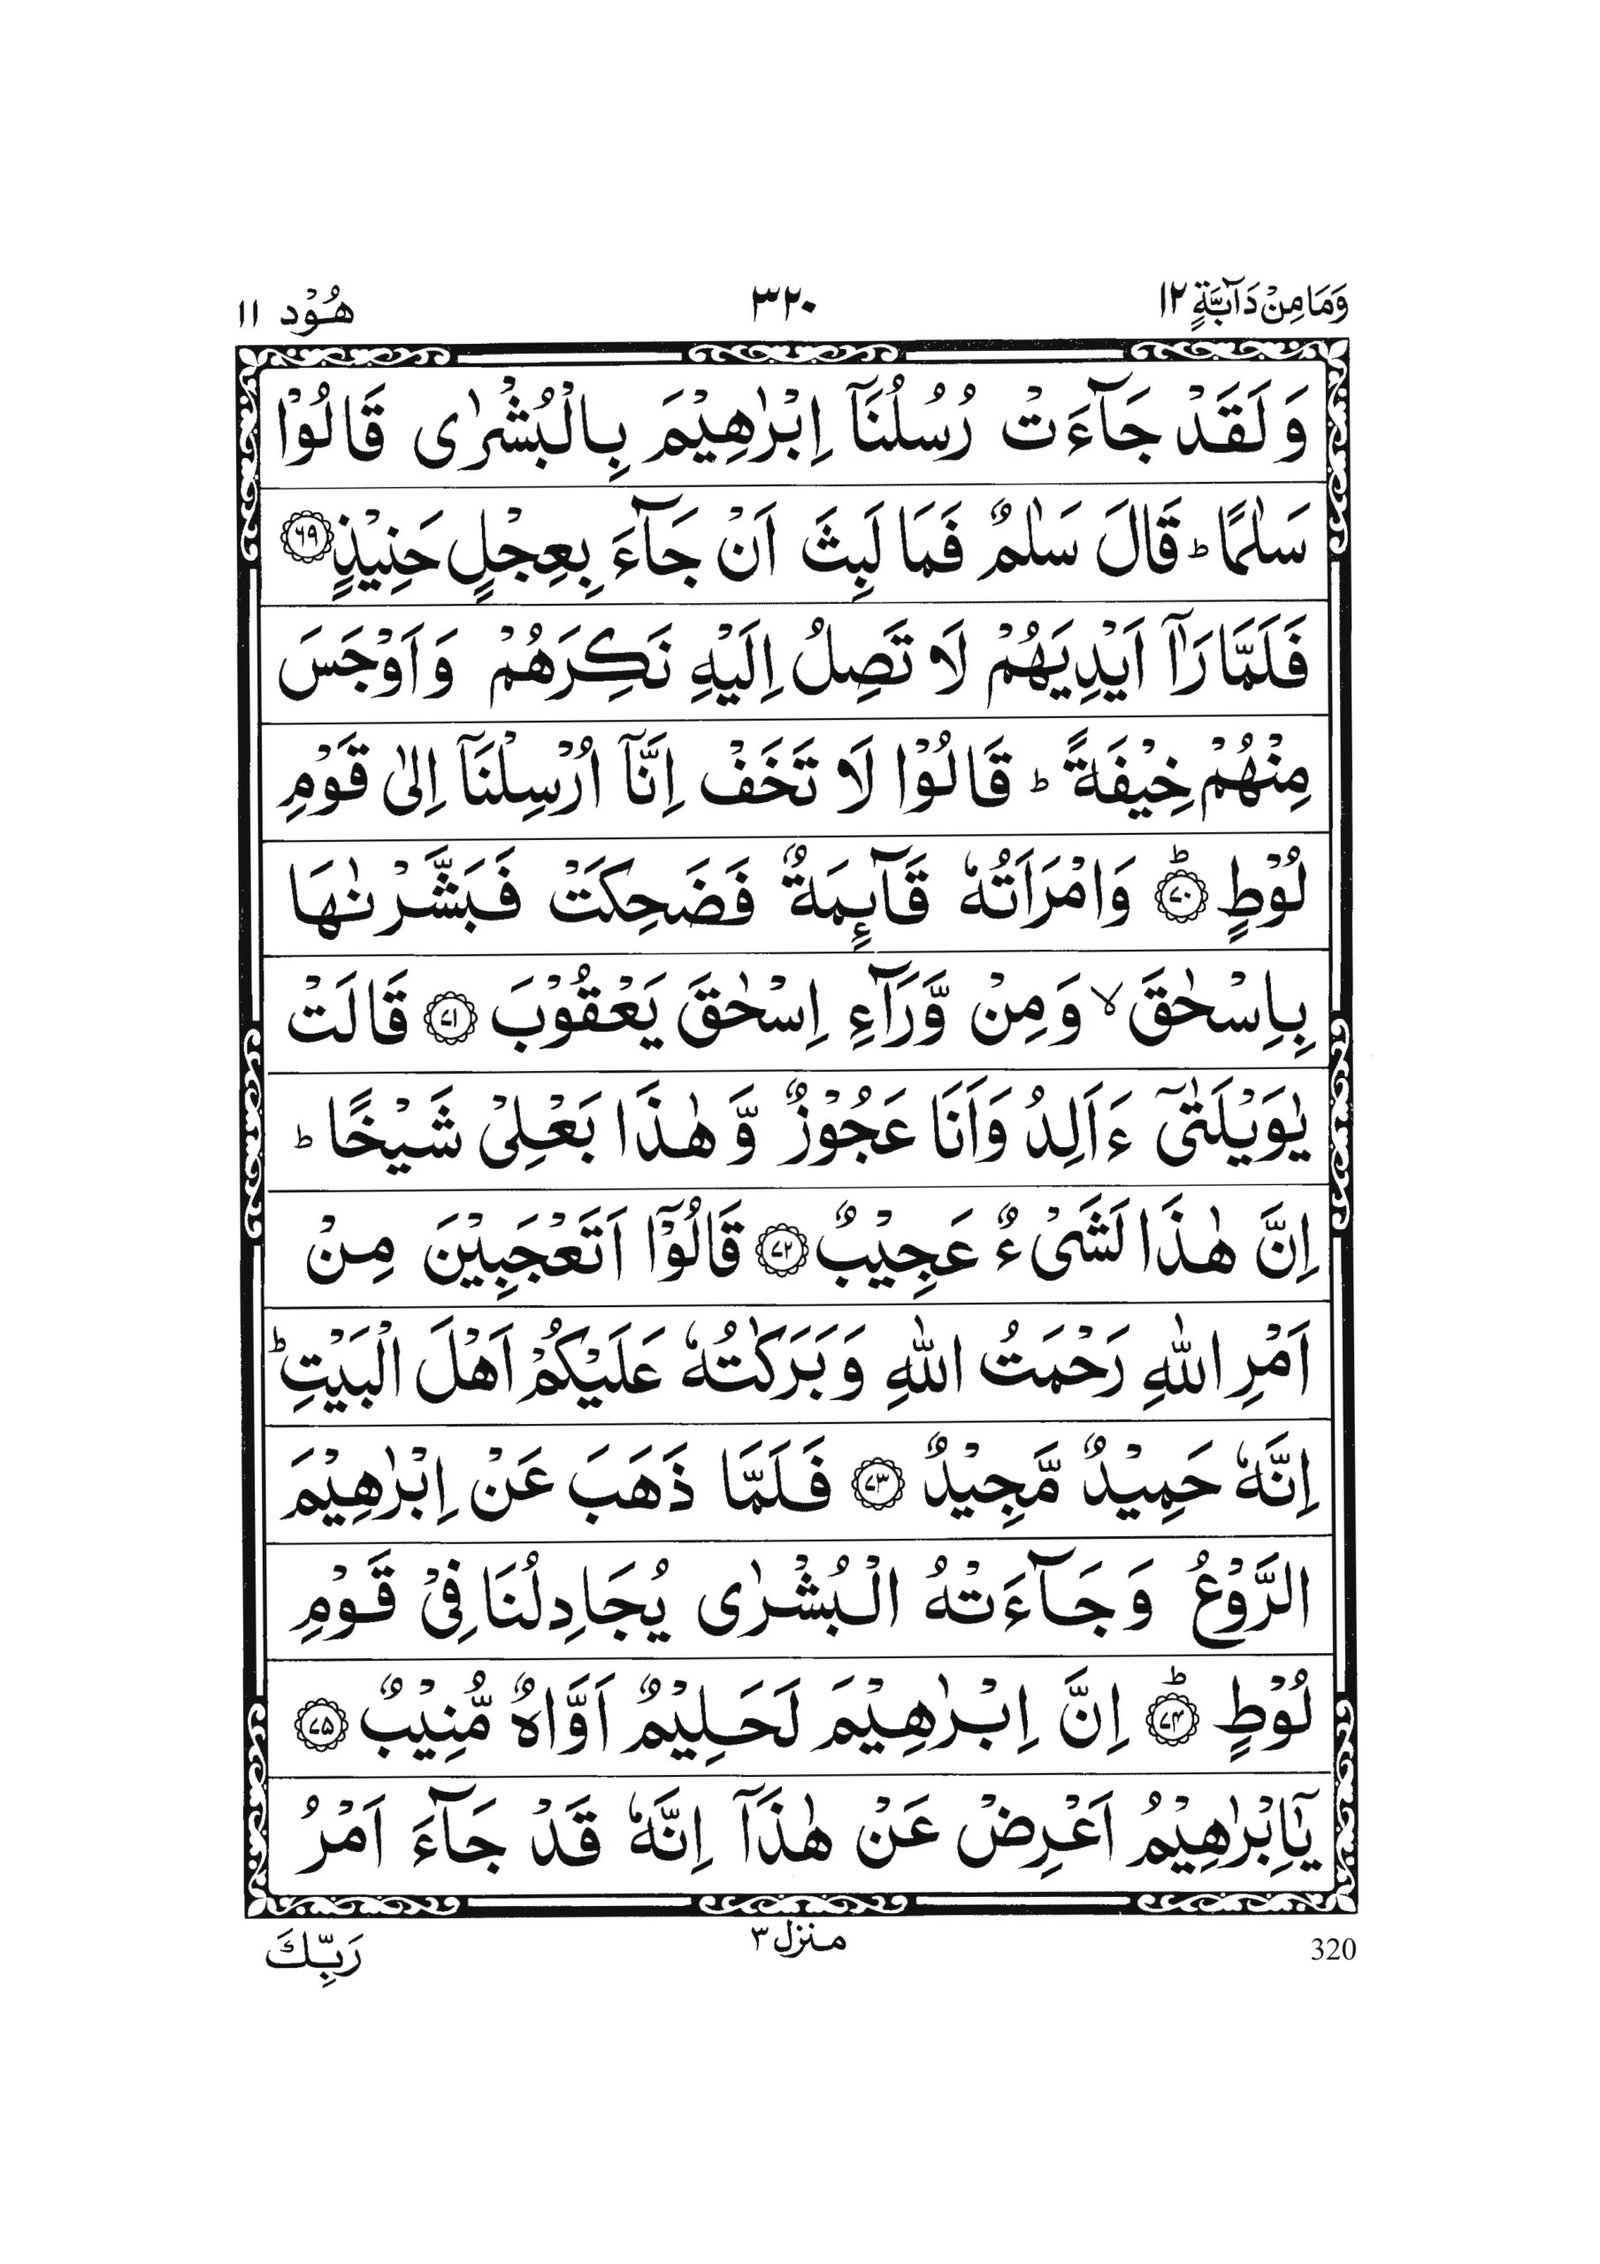 وَمَا مِنْ دَآبَّةٍ ١٢ ٣٢٠ هُوْد ١١
وَلَقَدْ جَآءَتْ رُسُلُنَآ اِبْرٰهِيْمَ بِالْبُشْرٰى قَالُوْا
سَلٰمًا ؕ قَالَ سَلٰمٌ فَمَا لَبِثَ اَنْ جَآءَ بِعِجْلٍ حَنِيْذٍ ۝٦٩
فَلَمَّا رَاٰۤ اَيْدِيَهُمْ لَا تَصِلُ اِلَيْهِ نَكِرَهُمْ وَاَوْجَسَ
مِنْهُمْ خِيْفَةً ؕ قَالُوْا لَا تَخَفْ اِنَّآ اُرْسِلْنَآ اِلٰى قَوْمِ
لُوْطٍ ؕ ۝٧٠ وَامْرَاَتُهٗ قَآئِمَةٌ فَضَحِكَتْ فَبَشَّرْنٰهَا
بِاِسْحٰقَ ۙ وَمِنْ وَّرَآءِ اِسْحٰقَ يَعْقُوْبَ ۝٧١ قَالَتْ
يٰوَيْلَتٰٓى ءَاَلِدُ وَاَنَا عَجُوْزٌ وَّهٰذَا بَعْلِيْ شَيْخًا ؕ
اِنَّ هٰذَا لَشَيْءٌ عَجِيْبٌ ۝٧٢ قَالُوْٓا اَتَعْجَبِيْنَ مِنْ
اَمْرِ اللّٰهِ رَحْمَتُ اللّٰهِ وَبَرَكٰتُهٗ عَلَيْكُمْ اَهْلَ الْبَيْتِ ؕ
اِنَّهٗ حَمِيْدٌ مَّجِيْدٌ ۝٧٣ فَلَمَّا ذَهَبَ عَنْ اِبْرٰهِيْمَ
الرَّوْعُ وَجَآءَتْهُ الْبُشْرٰى يُجَادِلُنَا فِيْ قَوْمِ
لُوْطٍ ؕ ۝٧٤ اِنَّ اِبْرٰهِيْمَ لَحَلِيْمٌ اَوَّاهٌ مُّنِيْبٌ ۝٧٥
يٰٓاِبْرٰهِيْمُ اَعْرِضْ عَنْ هٰذَآ اِنَّهٗ قَدْ جَآءَ اَمْرُ
320 منزل ٣ رَبِّكَ